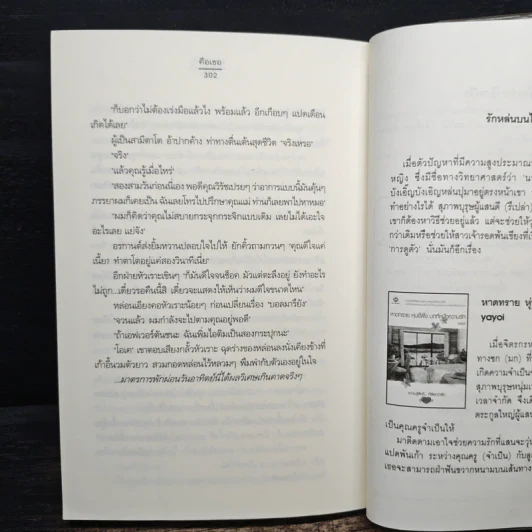 คือเธอ
302
"ก็บอกว่าไม่ต้องเร่งมือแล้วไง พร้อมแล้ว อีกเกือบๆ แปดเดือน
เกิดได้เลย"
ผู้เป็นสามีตาโต อ้าปากค้าง ท่าทางตื่นเต้นสุดชีวิต "จริงเหรอ"
"จริง"
"แล้วคุณรู้เมื่อไหร่"
"สองสามวันก่อนนี่เอง พอดีคุณวิริชเปรยๆ ว่าอาการแบบนี้มันคุ้นๆ
ภรรยาผมก็เคยเป็น ฉันเลยโทรไปปรึกษาคุณแม่ ท่านก็เลยพาไปหาหมอ"
"ผมก็คิดว่าคุณไม่สบายกระจุกกระจิกแบบเดิม เลยไม่ได้เอะใจ
อะไรเลย แย่จัง"
อรกานต์ส่งยิ้มหวานปลอบใจไปให้ ยักคิ้วถามกวนๆ "คุณดีใจแค่
เนี้ย? ทำตาโตอยู่แค่สองวินาทีเนี่ย"
อีกฝ่ายหัวเราะเขินๆ "ก็มันดีใจจนช็อค มัวแต่ตะลึงอยู่ ยังทำอะไร
ไม่ถูก...เดี๋ยวรอคืนนี้สิ เดี๋ยวจะแสดงให้เห็นว่าผมดีใจขนาดไหน"
หล่อนเอียงคอหัวเราะน้อยๆ ก่อนเปลี่ยนเรื่อง "บอลมารึยัง"
"จวนแล้ว ผมกำลังจะไปตามคุณอยู่พอดี"
"ถ้าเอฟเวอร์ตันชนะ ฉันเพิ่มไอติมเป็นสองกระปุกนะ"
"โอเค" เขาตอบเสียงกลั้วหัวเราะ ฉุดร่างของหล่อนลงนั่งเคียงข้างที่
เก้าอี้นวมตัวยาว สวมกอดหล่อนไว้หลวมๆ พึมพำกับตัวเองอยู่ในใจ
...มาตรการพักผ่อนวันอาทิตย์นี้ได้ผลวิเศษเกินคาดจริงๆ
รักหล่นบนไ
เมื่อตัวปัญหาที่มีความสูงประมาณ
หญิง ซึ่งมีชื่อทางวิทยาศาสตร์ว่า
บังเอิ๊ญบังเอิญหล่นปุ่มาอยู่ตรงหน้าเขา
ทำอย่างไรได้ สุภาพบุรุษผู้แสนดี (รึเปล่า)
เขาก็ต้องหาวิธีช่วยอยู่แล้ว แต่จะช่วยให้
กว่าเดิมหรือช่วยให้สาวเจ้ารอดพ้นเขี้ยวที่
"การดูตัว" นั่นมันก็อีกเรื่อง
หาดทราย
yayoi
เมื่อจิตรกระ
ทางชก (มก) ที่
เกิดความจำเป็น
สุภาพบุรุษหนุ่ม
เวลาจำกัด จึง
ตระกูลใหญ่ผู้แสน
เป็นคุณครูจำเป็นให้
มาติดตามเอาใจช่วยความรักที่แสนจะวุ่น
แปดพันเก้า ระหว่างคุณครู (จำเป็น) กับ
เธอจะสามารถฝ่าฟันขวากหนามบนเส้นทาง